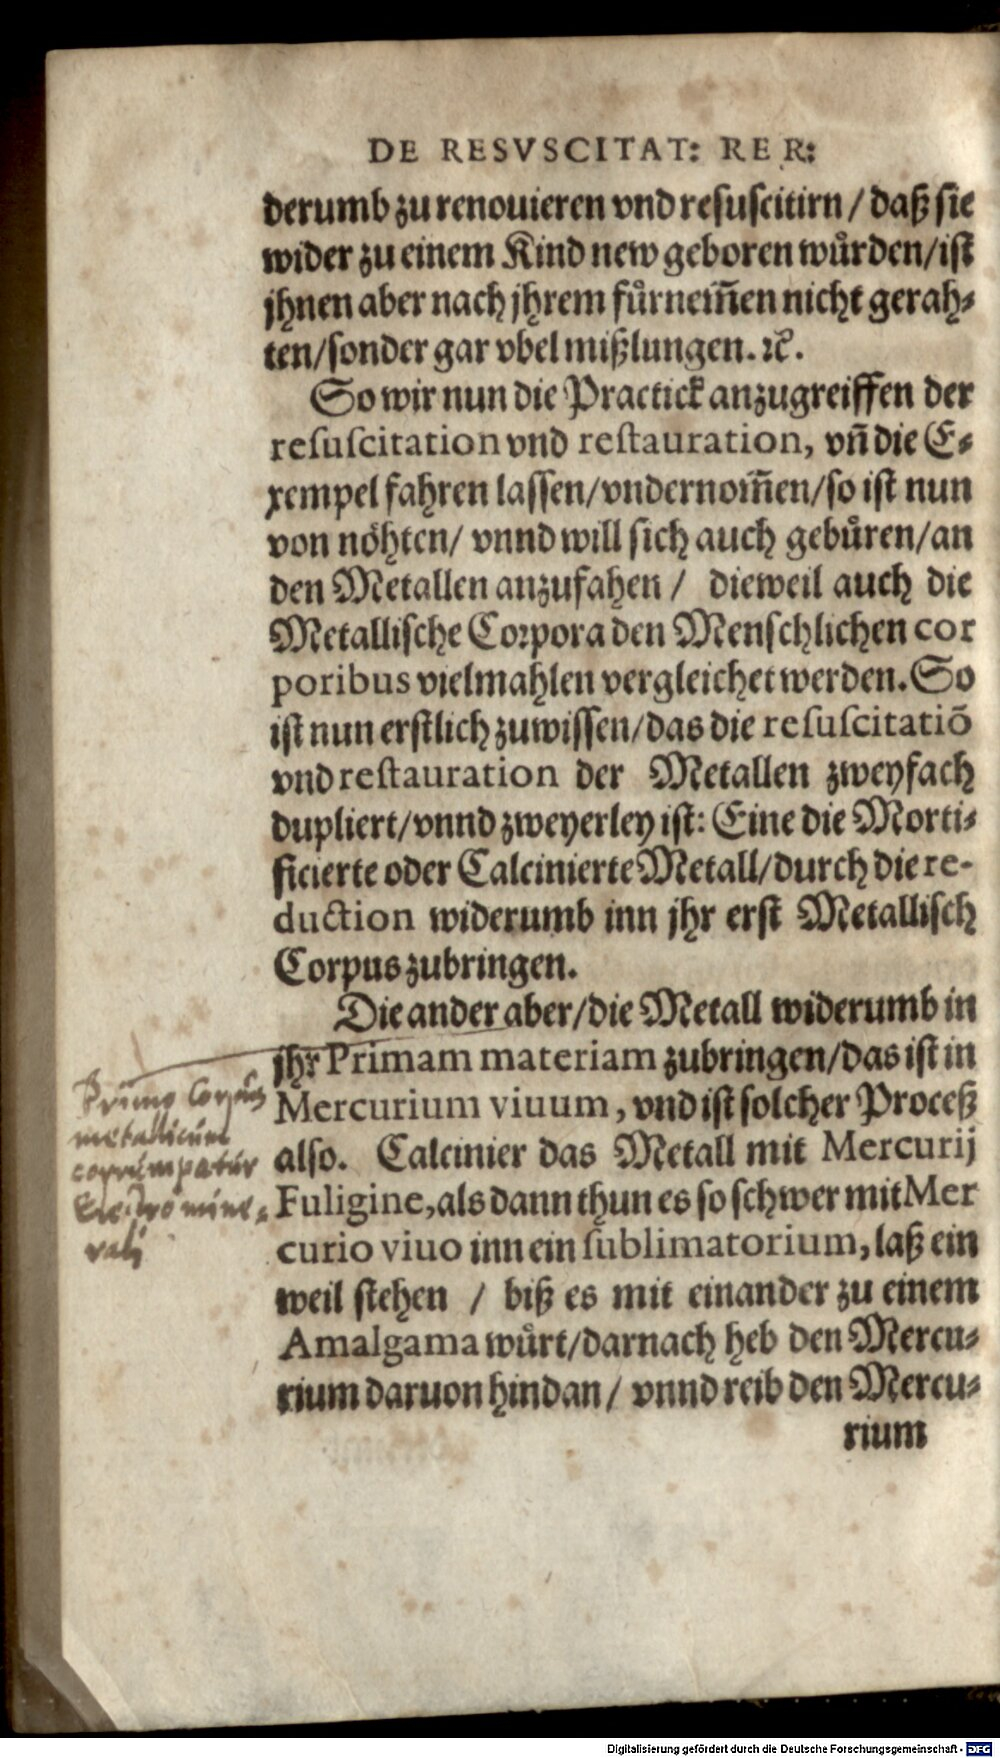 DE RESVSCITAT: RER:
derumb zu renouieren vnd resuscitirn / daß sie
wider zu einem Kind new geboren wuͤrden/ist
jhnen aber nach jhrem fuͤrnem̃en nicht gerah⸗
ten/sonder gar vbel mißlungen. ꝛc̃.
So wir nun die Practick anzugreiffen der
resuscitation vnd restauration, vñ die E⸗
xempel fahren lassen/vndernom̃en/so ist nun
von noͤhten/ vnnd will sich auch gebuͤren/an
den Metallen anzufahen / dieweil auch die
Metallische Corpora den Menschlichen cor
poribus vielmahlen vergleichet werden. So
ist nun erstlich zuwissen/das die resuscitatiõ
vnd restauration der Metallen zweyfach
dupliert/vnnd zweyerley ist: Eine die Morti⸗
ficierte oder Calcinierte Metall/durch die re-
duction widerumb inn jhr erst Metallisch
Corpus zubringen.
Die ander aber/die Metall widerumb in
jhr Primam materiam zubringen/das ist in
Mercurium viuum, vnd ist solcher Proceß
also. Calcinier das Metall mit Mercurij
Fuligine, als dann thun es so schwer mit Mer
curio viuo inn ein sublimatorium, laß ein
weil stehen / biß es mit einander zu einem
Amalgama wuͤrt/darnach heb den Mercu⸗
rium daruon hindan / vnnd reib den Mercu⸗
rium
Primo Corpus
metallicum
corrumpatur
Electro mine⸗
rali
Digitalisierung gefördert durch die Deutsche Forschungsgemeinschaft - DFG